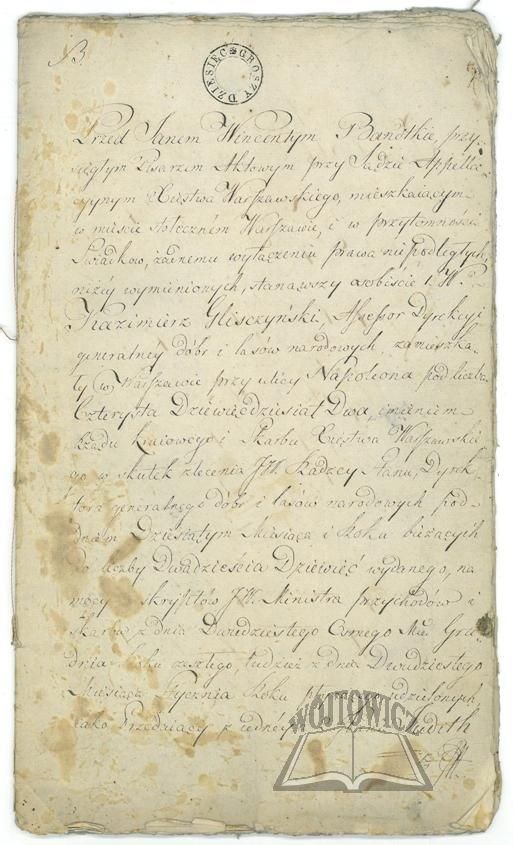 B.
DZIESIĘĆ GROSZY
Przed Janem Wincentym Bandtkie, przy-
sięgłym Pisarzem Aktowym przy Sądzie Appella-
cyinym Xięstwa Warszawskiego, mieszkaiącym
w mieście stołecznem Warszawie, i w przytomności
Swiadków, żadnemu wyłączeniu prawa niepodległych,
niżéy wymienionych, stanąwszy osobiście W.
Kazimierz Glisczyński Assessor Dyrekcyi
generalney dóbr i lasów narodowych zamieszka-
ły w Warszawie przy ulicy Napoleona pod liczbą
Czterysta Dziewięćdziesiąt Dwa imieniem
Rządu kraiowego i Skarbu Xięstwa Warszawskie-
go w skutek zlecenia JW. Radzcy Stanu, Dyrek-
tora generalnego dóbr i lasów narodowych pod
dniem Dziesiątym Miesiąca i Roku bieżących
do liczby Dwadzieścia Dziewięć wydanego, na
mocy reskryptów JW. Ministra przychodów i
skarbu z dnia Dwudziestego Osmego Gru-
dnia Roku zeszłego, tudzież z dnia Dwudziestego
Miesiąca Stycznia Roku udzielonych
iako Przedaiący z iedney Judith
WOJTOWICZ